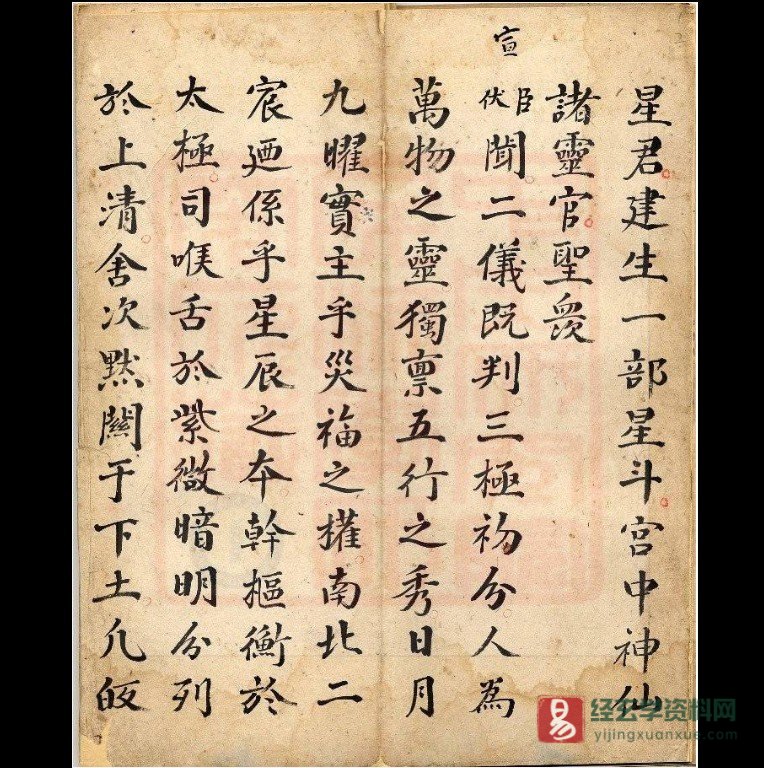 星君建生一部星斗宮中神仙
諸靈官聖衆
宣
臣伏聞二儀既判三極初分人為
萬物之靈獨禀五行之秀日月
九曜實主乎災福之權南北二
宸廼係乎星辰之夲幹樞衡於
太極司喉舌於紫微暗明分列
於上清舍次黙關于下土凡皈
易 经玄学资料网
yijingxuanxue.com